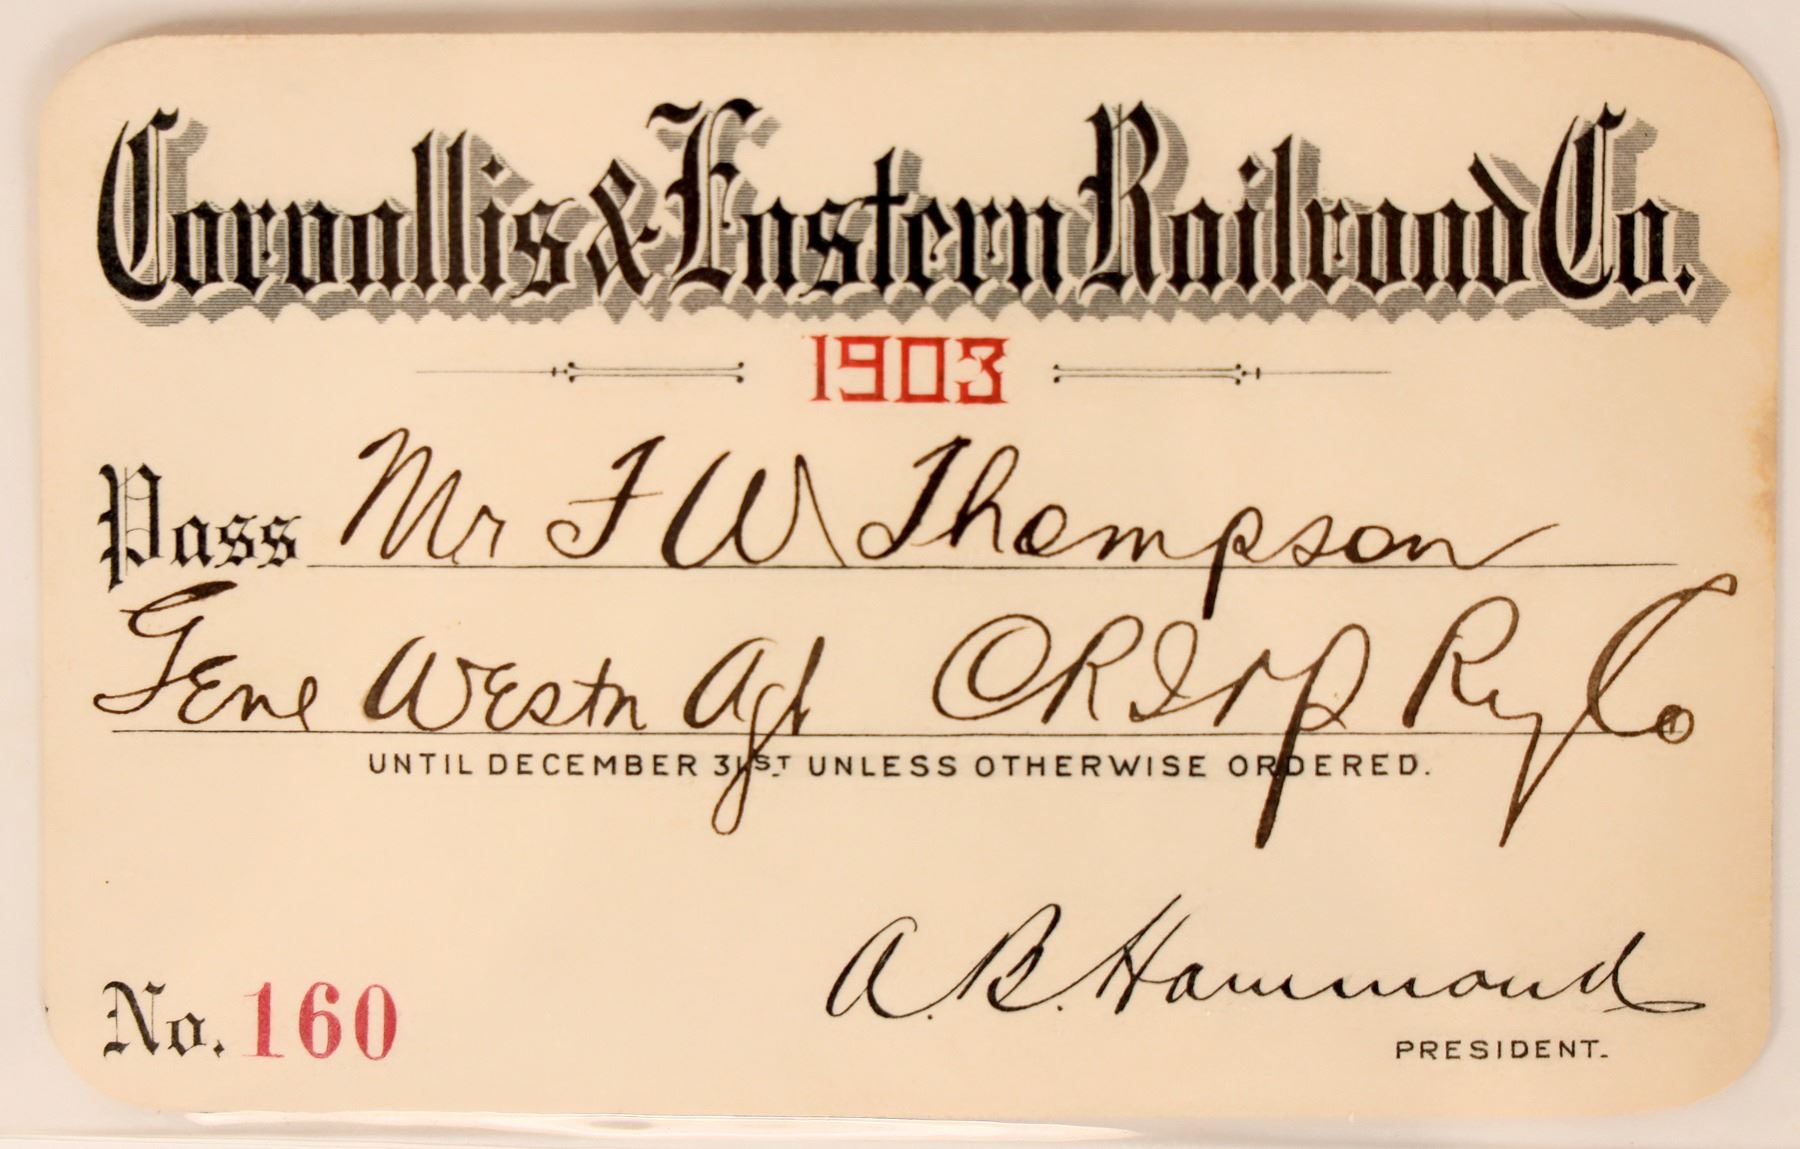 Corvallis & Eastern Railroad Co.
1903
Pass Mr F W Thompson
Genl Westn Agt CRI&P Ry Co
UNTIL DECEMBER 31ST UNLESS OTHERWISE ORDERED.
A. B. Hammond
No. 160
PRESIDENT.